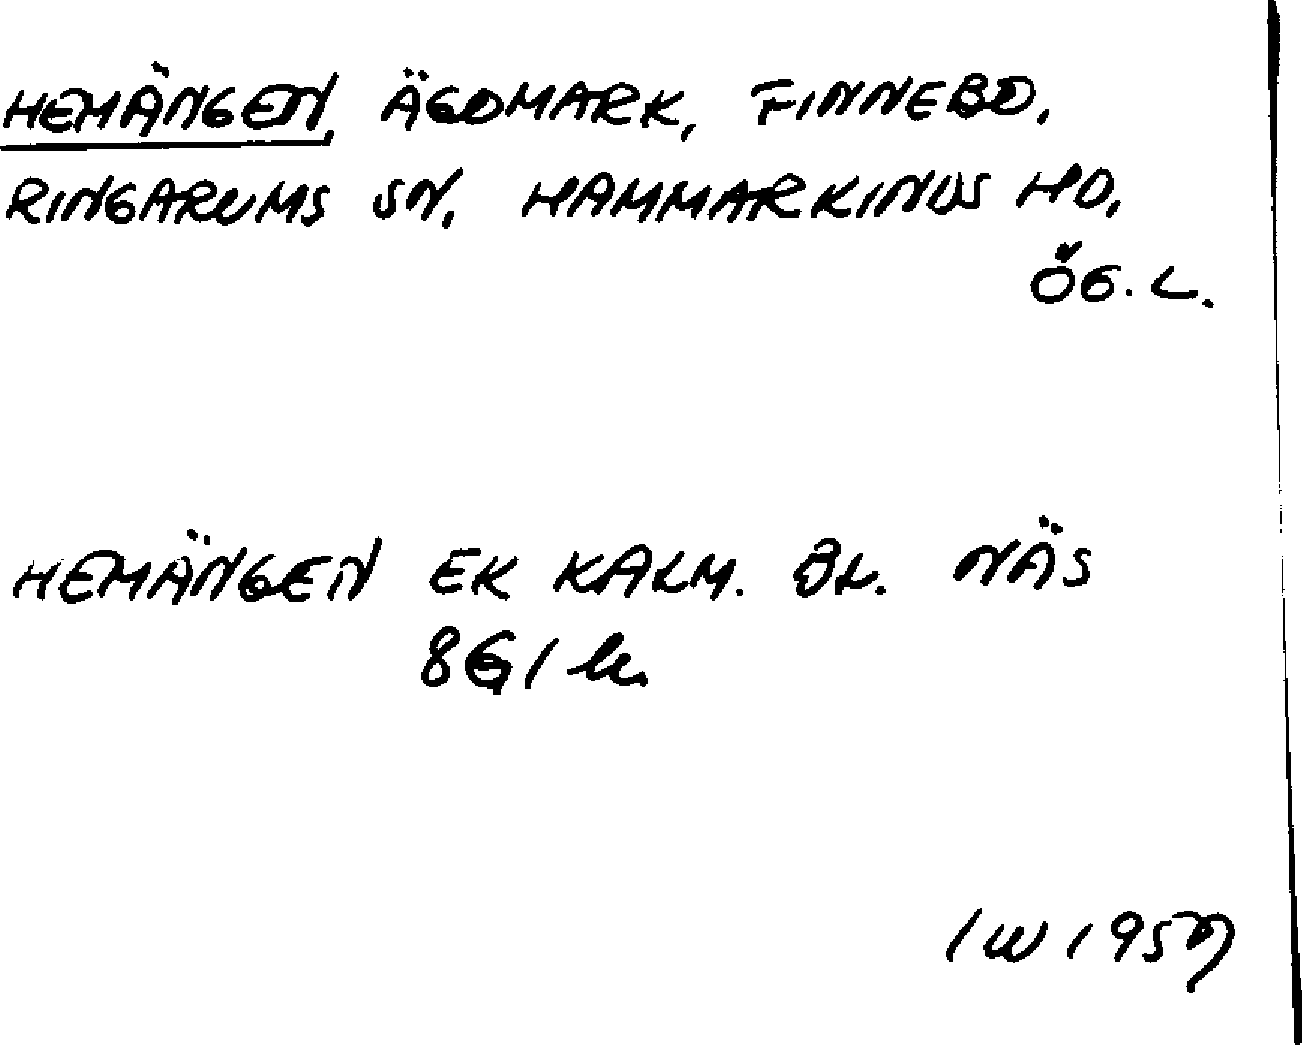 HEMÄNGEN, ÄGOMARK, FINNEBO,
RINGARUMS SN. HAMMARKINDS HD.
ÖG. L.
HEMÄNGEN EK KALM. BL. NÄS
IW 1957